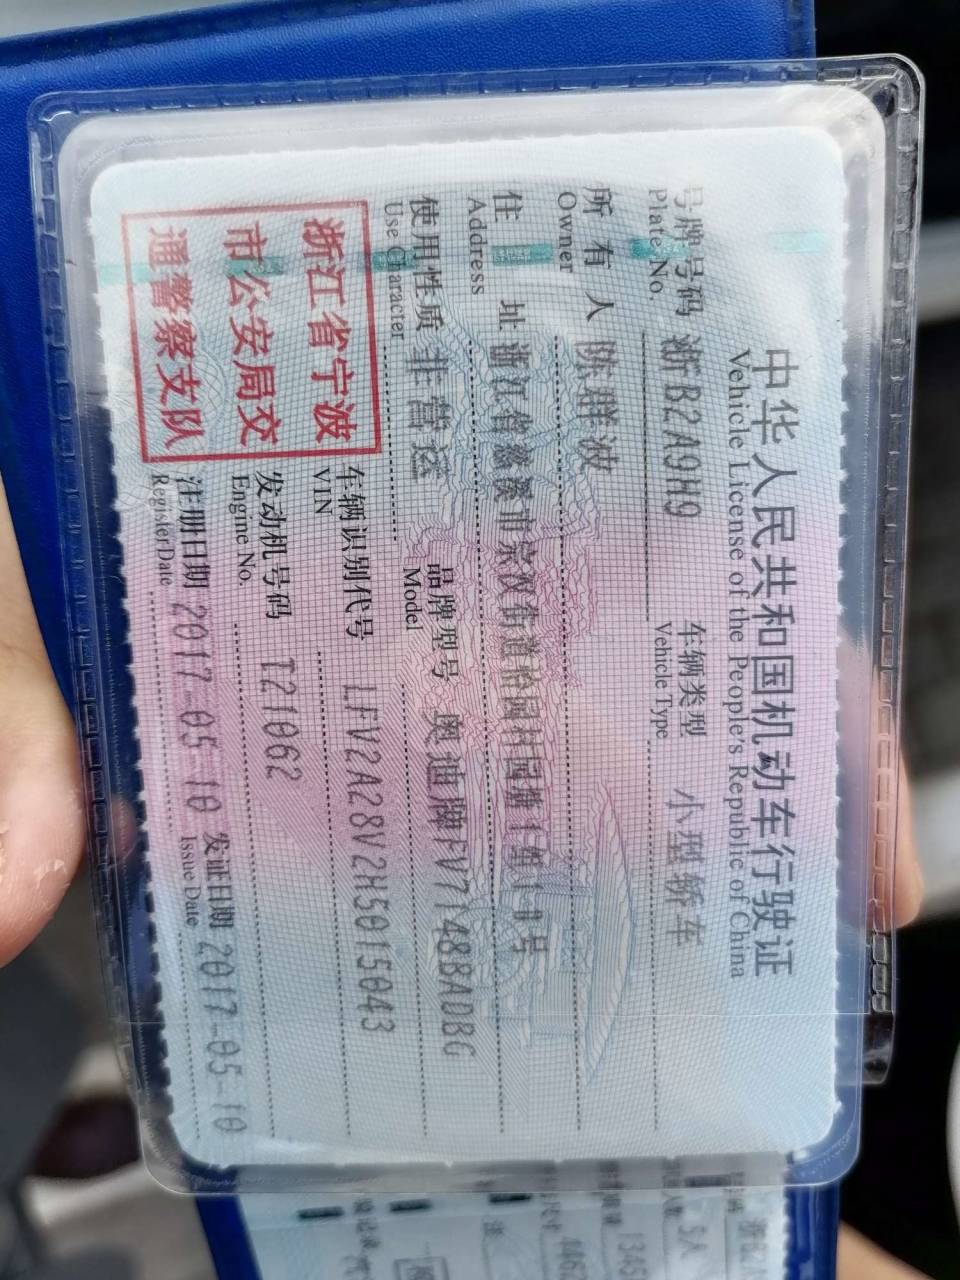 中华人民共和国机动车行驶证
Vehicle License of the People's Republic of China
号牌号码 浙B2A9H9 车辆类型 小型轿车
Plate No. Vehicle Type
所有人 陈群波
Owner
住址 浙江省慈溪市宗汉街道怡园村园墙1组10号
Address
使用性质 非营运 品牌型号 奥迪牌FV7148BADBG
Use Character Model
浙江省宁波
市公安局交
通警察支队
车辆识别代号 LFV2A28V2H5015043
VIN
发动机号码 T21062
Engine No.
注册日期 2017-05-10 发证日期 2017-05-10
Register Date Issue Date
5人